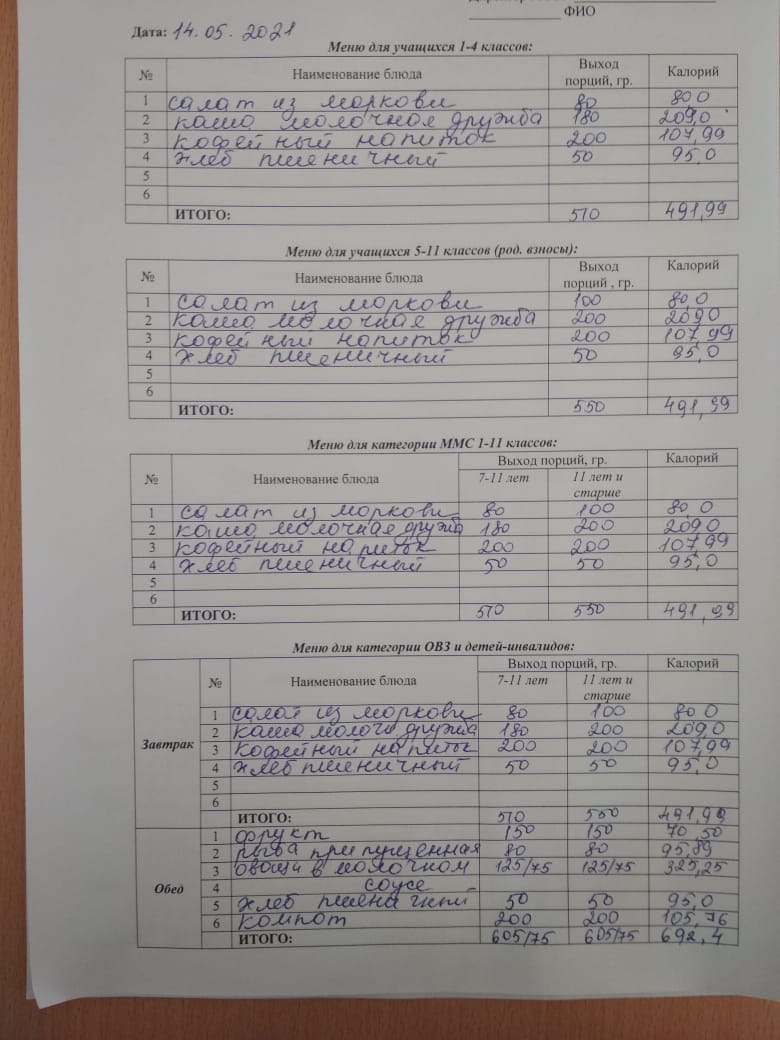 ФИО
Дата: 14.05.2021
Меню для учащихся 1-4 классов:
№ Наименование блюда Выход порций, гр. Калорий
1 салат из моркови 80 80 0
2 каша молочная дружба 180 209,0
3 кофейный напиток 200 107,99
4 хлеб пшеничный 50 95,0
5
6
ИТОГО: 510 491,99
Меню для учащихся 5-11 классов (род. взносы):
№ Наименование блюда Выход порций , гр. Калорий
1 салат из моркови 100 80,0
2 каша молочная дружба 200 209,0
3 кофейный напиток 200 107,99
4 хлеб пшеничный 50 95,0
5
6
ИТОГО: 550 491,99
Меню для категории ММС 1-11 классов:
№ Наименование блюда Выход порций, гр. Калорий
7-11 лет 11 лет и старше
1 салат из моркови 80 100 80,0
2 каша молочная дружба 180 200 209,0
3 кофейный напиток 200 200 107,99
4 хлеб пшеничный 50 50 95,0
5
6
ИТОГО: 510 550 491,99
Меню для категории ОВЗ и детей-инвалидов:
№ Наименование блюда Выход порций, гр. Калорий
7-11 лет 11 лет и старше
Завтрак
1 салат из моркови 80 100 80 0
2 каша молочн дружба 180 200 209,0
3 кофейный напиток 200 200 107,99
4 хлеб пшеничный 50 50 95,0
5
6
ИТОГО: 510 550 491,99
Обед
1 фрукт 150 150 70,50
2 рыба припущенная 80 80 95,89
3 овощи в молочном 125/75 125/75 325,25
4 соусе
5 хлеб пшеничный 50 50 95,0
6 компот 200 200 105,76
ИТОГО: 605/75 605/75 692,4